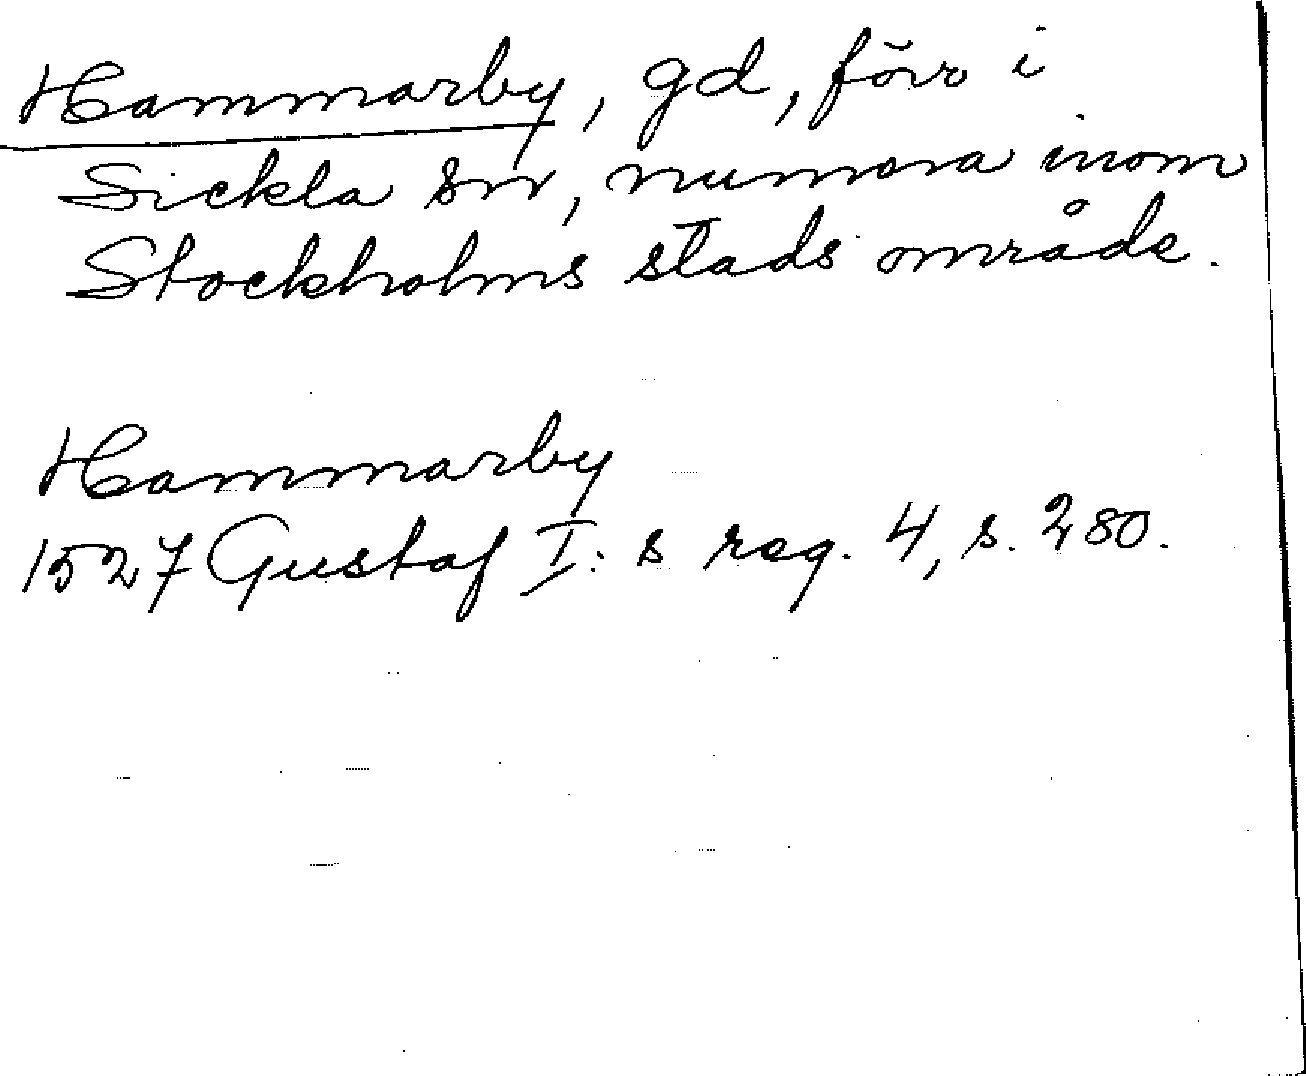 Hammarby, gd, förr i
Sickla sn, numera inom
Stockholms stads område.
Hammarby
1527 Gustaf I:s reg. 4, s. 280.